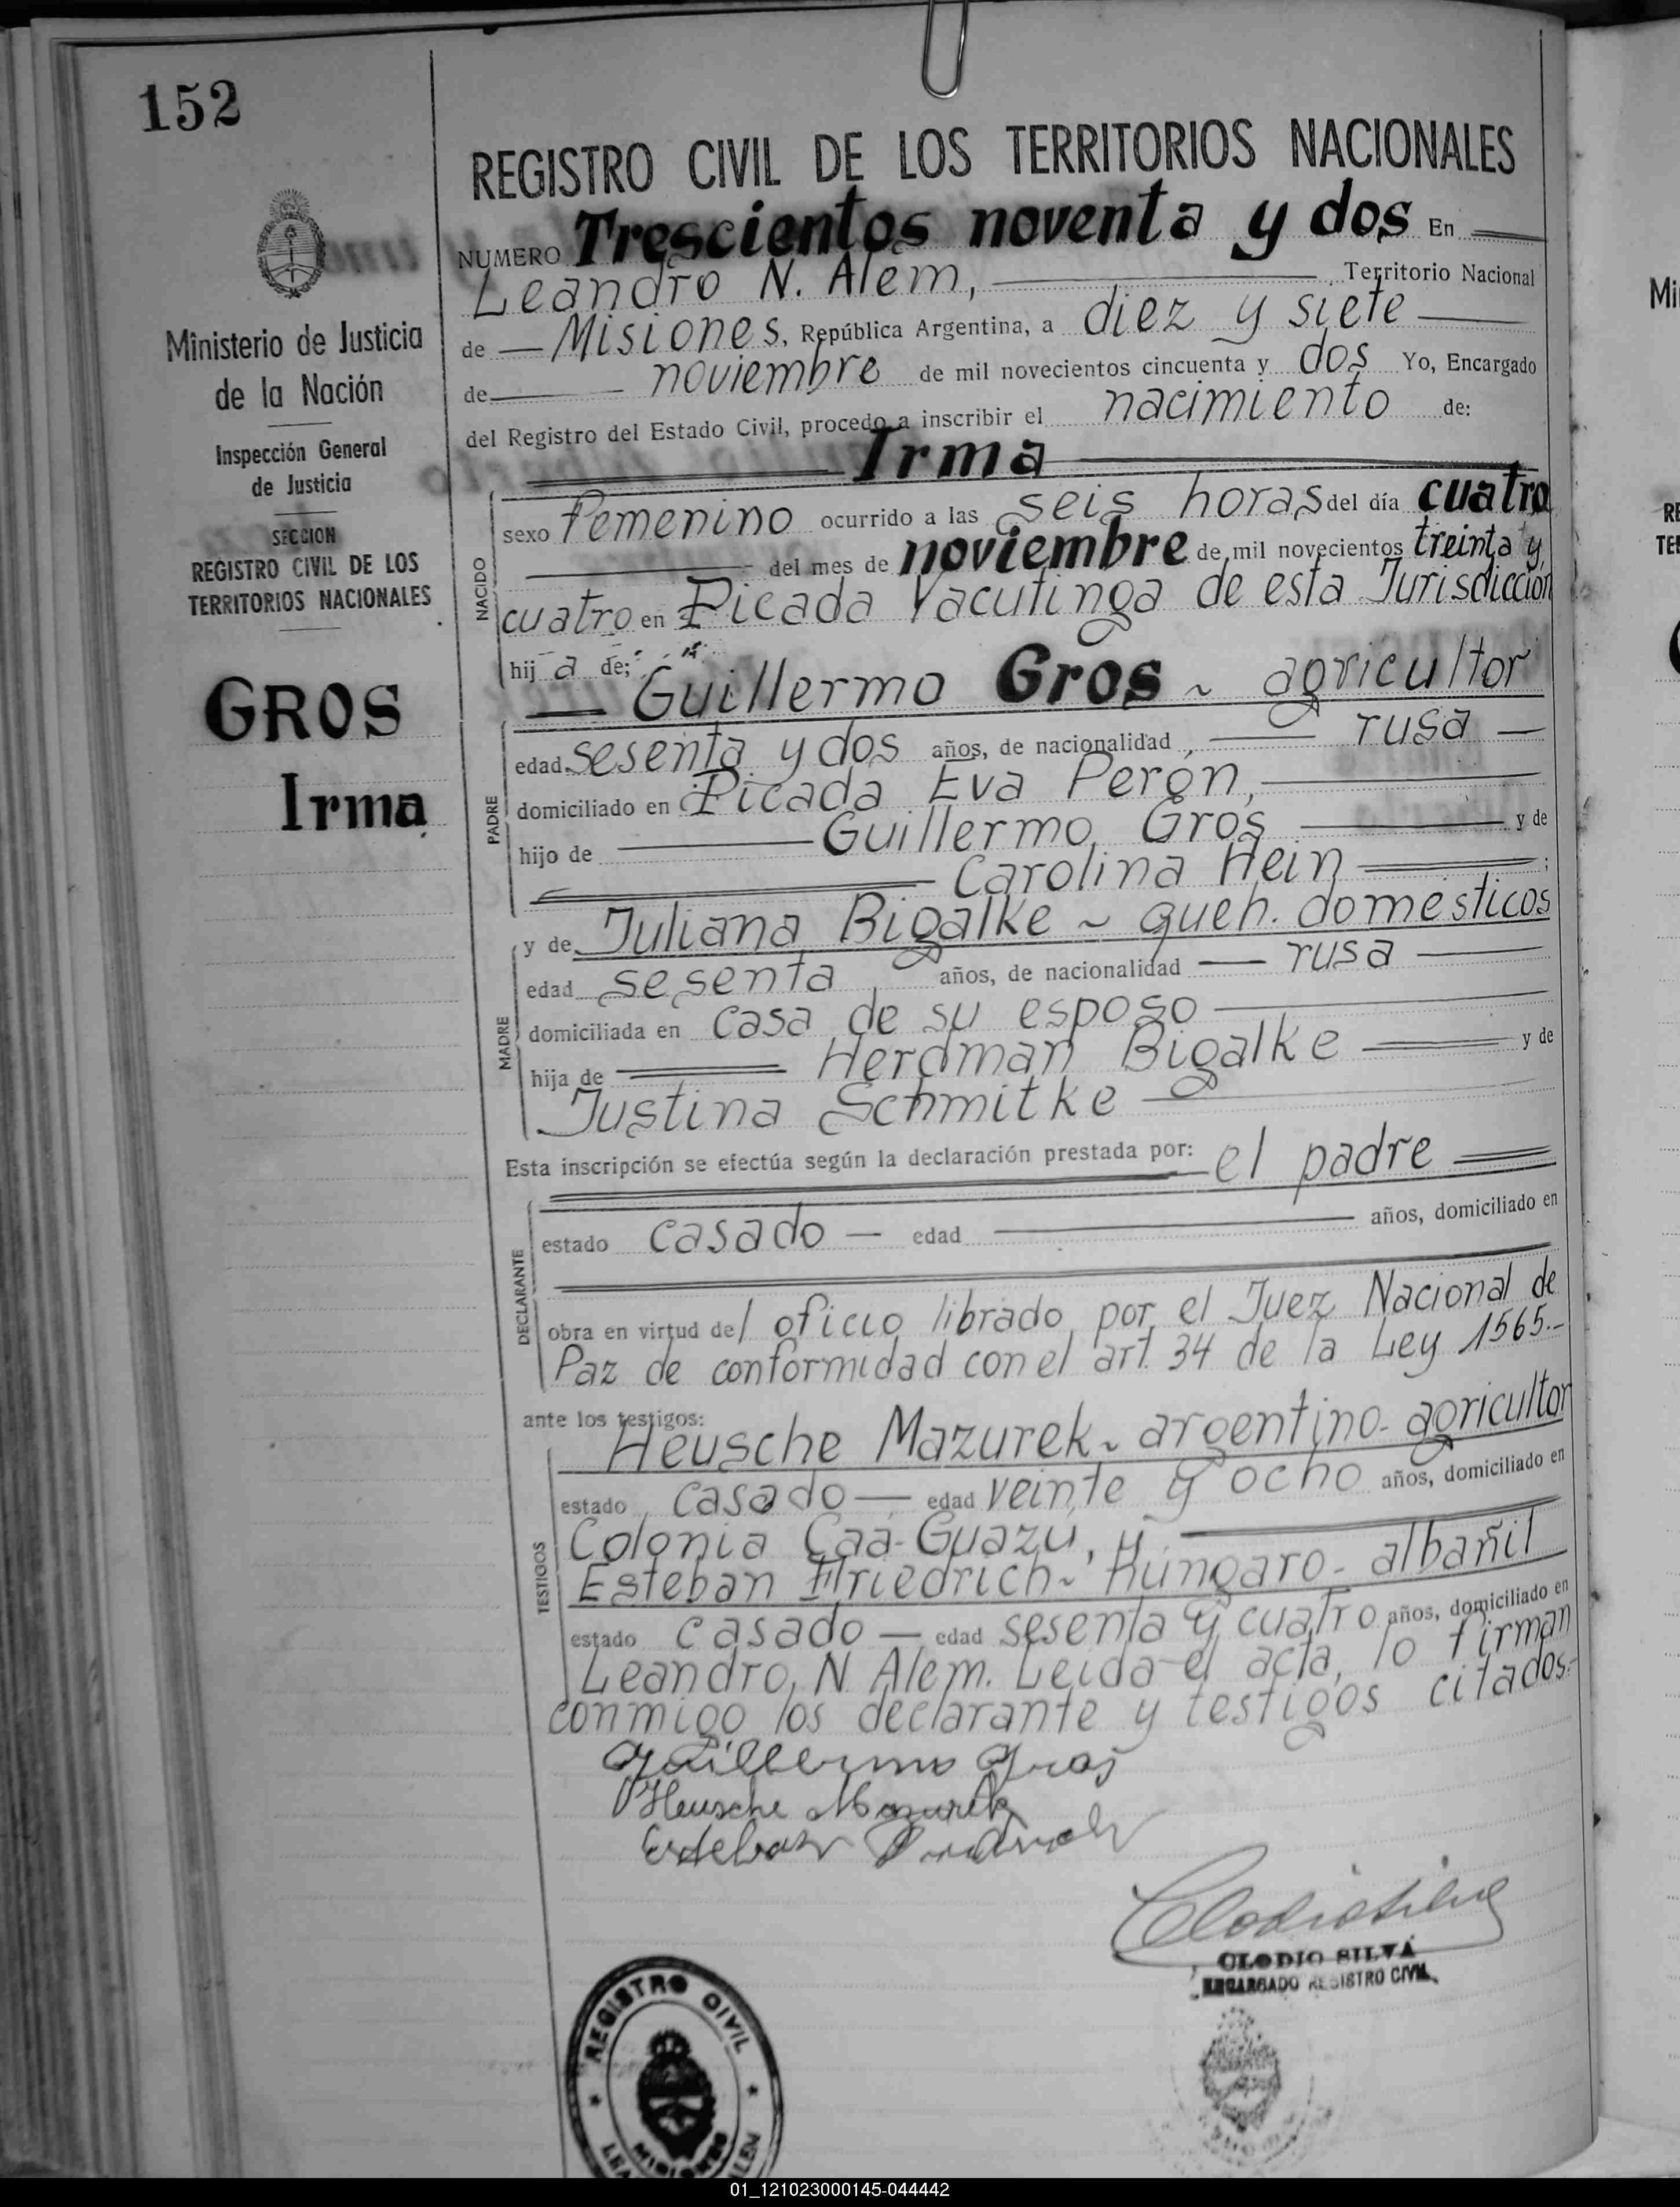 152
Ministerio de Justicia
de la Nación
Inspección General
de Justicia
SECCION
REGISTRO CIVIL DE LOS
TERRITORIOS NACIONALES
GROS
Irma
REGISTRO CIVIL DE LOS TERRITORIOS NACIONALES
NUMERO Trescientos noventa y dos En
Leandro N. Alem, Territorio Nacional
de Misiones, República Argentina, a diez y siete
de noviembre de mil novecientos cincuenta y dos Yo, Encargado
del Registro del Estado Civil, procedo a inscribir el nacimiento de:
Irma
NACIDO
sexo femenino ocurrido a las seis horas del día cuatro
del mes de noviembre de mil novecientos treinta y
cuatro en Picada Yacutinga de esta Jurisdicción
hij a de:
Guillermo Gros ~ agricultor
PADRE
edad sesenta y dos años, de nacionalidad rusa
domiciliado en Picada Eva Perón,
hijo de Guillermo Gros y de
Carolina Hein ;
y de Juliana Bigalke ~ queh. domésticos
MADRE
edad sesenta años, de nacionalidad rusa
domiciliada en casa de su esposo
hija de Herdman Bigalke y de
Justina Schmitke
Esta inscripción se efectúa según la declaración prestada por: el padre
DECLARANTE
estado casado edad años, domiciliado en
obra en virtud de l oficio librado por el Juez Nacional de
Paz de conformidad con el art. 34 de la Ley 1565.-
ante los testigos:
TESTIGOS
Heusche Mazurek ~ argentino - agricultor
estado casado edad veinte y ocho años, domiciliado en
Colonia Caá-Guazú, y
Esteban Friedrich ~ húngaro - albañil
estado casado edad sesenta y cuatro años, domiciliado en
Leandro N. Alem. Leida el acta, lo firman
conmigo los declarante y testigos citados.-
Guillermo Gros
Heusche Mazurek
Esteban Friedrich
Clodio Silva
CLODIO SILVA
ENCARGADO REGISTRO CIVIL
REGISTRO CIVIL
MISIONES
01_121023000145-044442